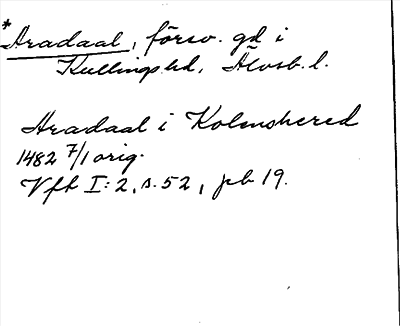 *Aradaal, försv. gd i
Kullings hd, Älvsb. l.
Aradaal i Kolmshered
1482 7/1 orig.
Vfk I:2, s. 52, pb 19.